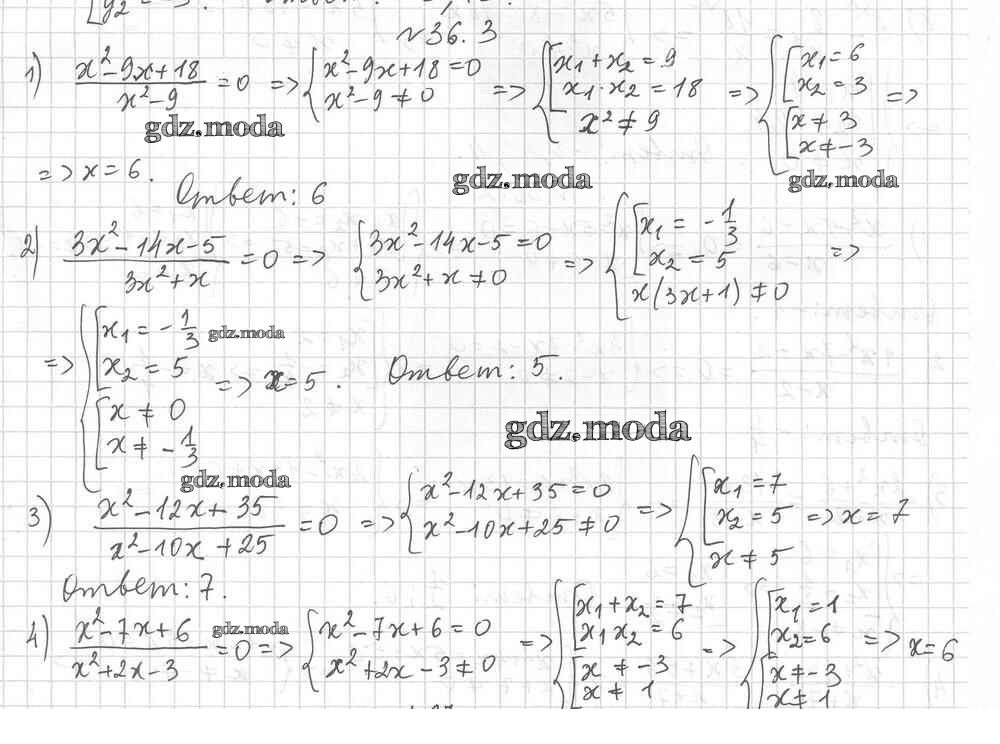 №36.3
1) (x²-9x+18)/(x²-9) = 0 => { x²-9x+18=0 ; x²-9≠0 => { [ x₁+x₂=9 ; x₁·x₂=18 ; x²≠9 => { [ x₁=6 ; x₂=3 ; [ x≠3 ; x≠-3 =>
gdz.moda
gdz.moda
gdz.moda
=> x=6. Ответ: 6
2) (3x²-14x-5)/(3x²+x) = 0 => { 3x²-14x-5=0 ; 3x²+x≠0 => { [ x₁=-1/3 ; x₂=5 ; x(3x+1)≠0 =>
=> { [ x₁=-1/3 ; x₂=5 ; [ x≠0 ; x≠-1/3 => x=5. Ответ: 5.
gdz.moda
gdz.moda
gdz.moda
3) (x²-12x+35)/(x²-10x+25) = 0 => { x²-12x+35=0 ; x²-10x+25≠0 => { [ x₁=7 ; x₂=5 ; x≠5 => x=7
Ответ: 7.
4) (x²-7x+6)/(x²+2x-3) = 0 => { x²-7x+6=0 ; x²+2x-3≠0 => { [ x₁+x₂=7 ; x₁x₂=6 ; [ x≠-3 ; x≠1 => { [ x₁=1 ; x₂=6 ; [ x≠-3 ; x≠1 => x=6
gdz.moda